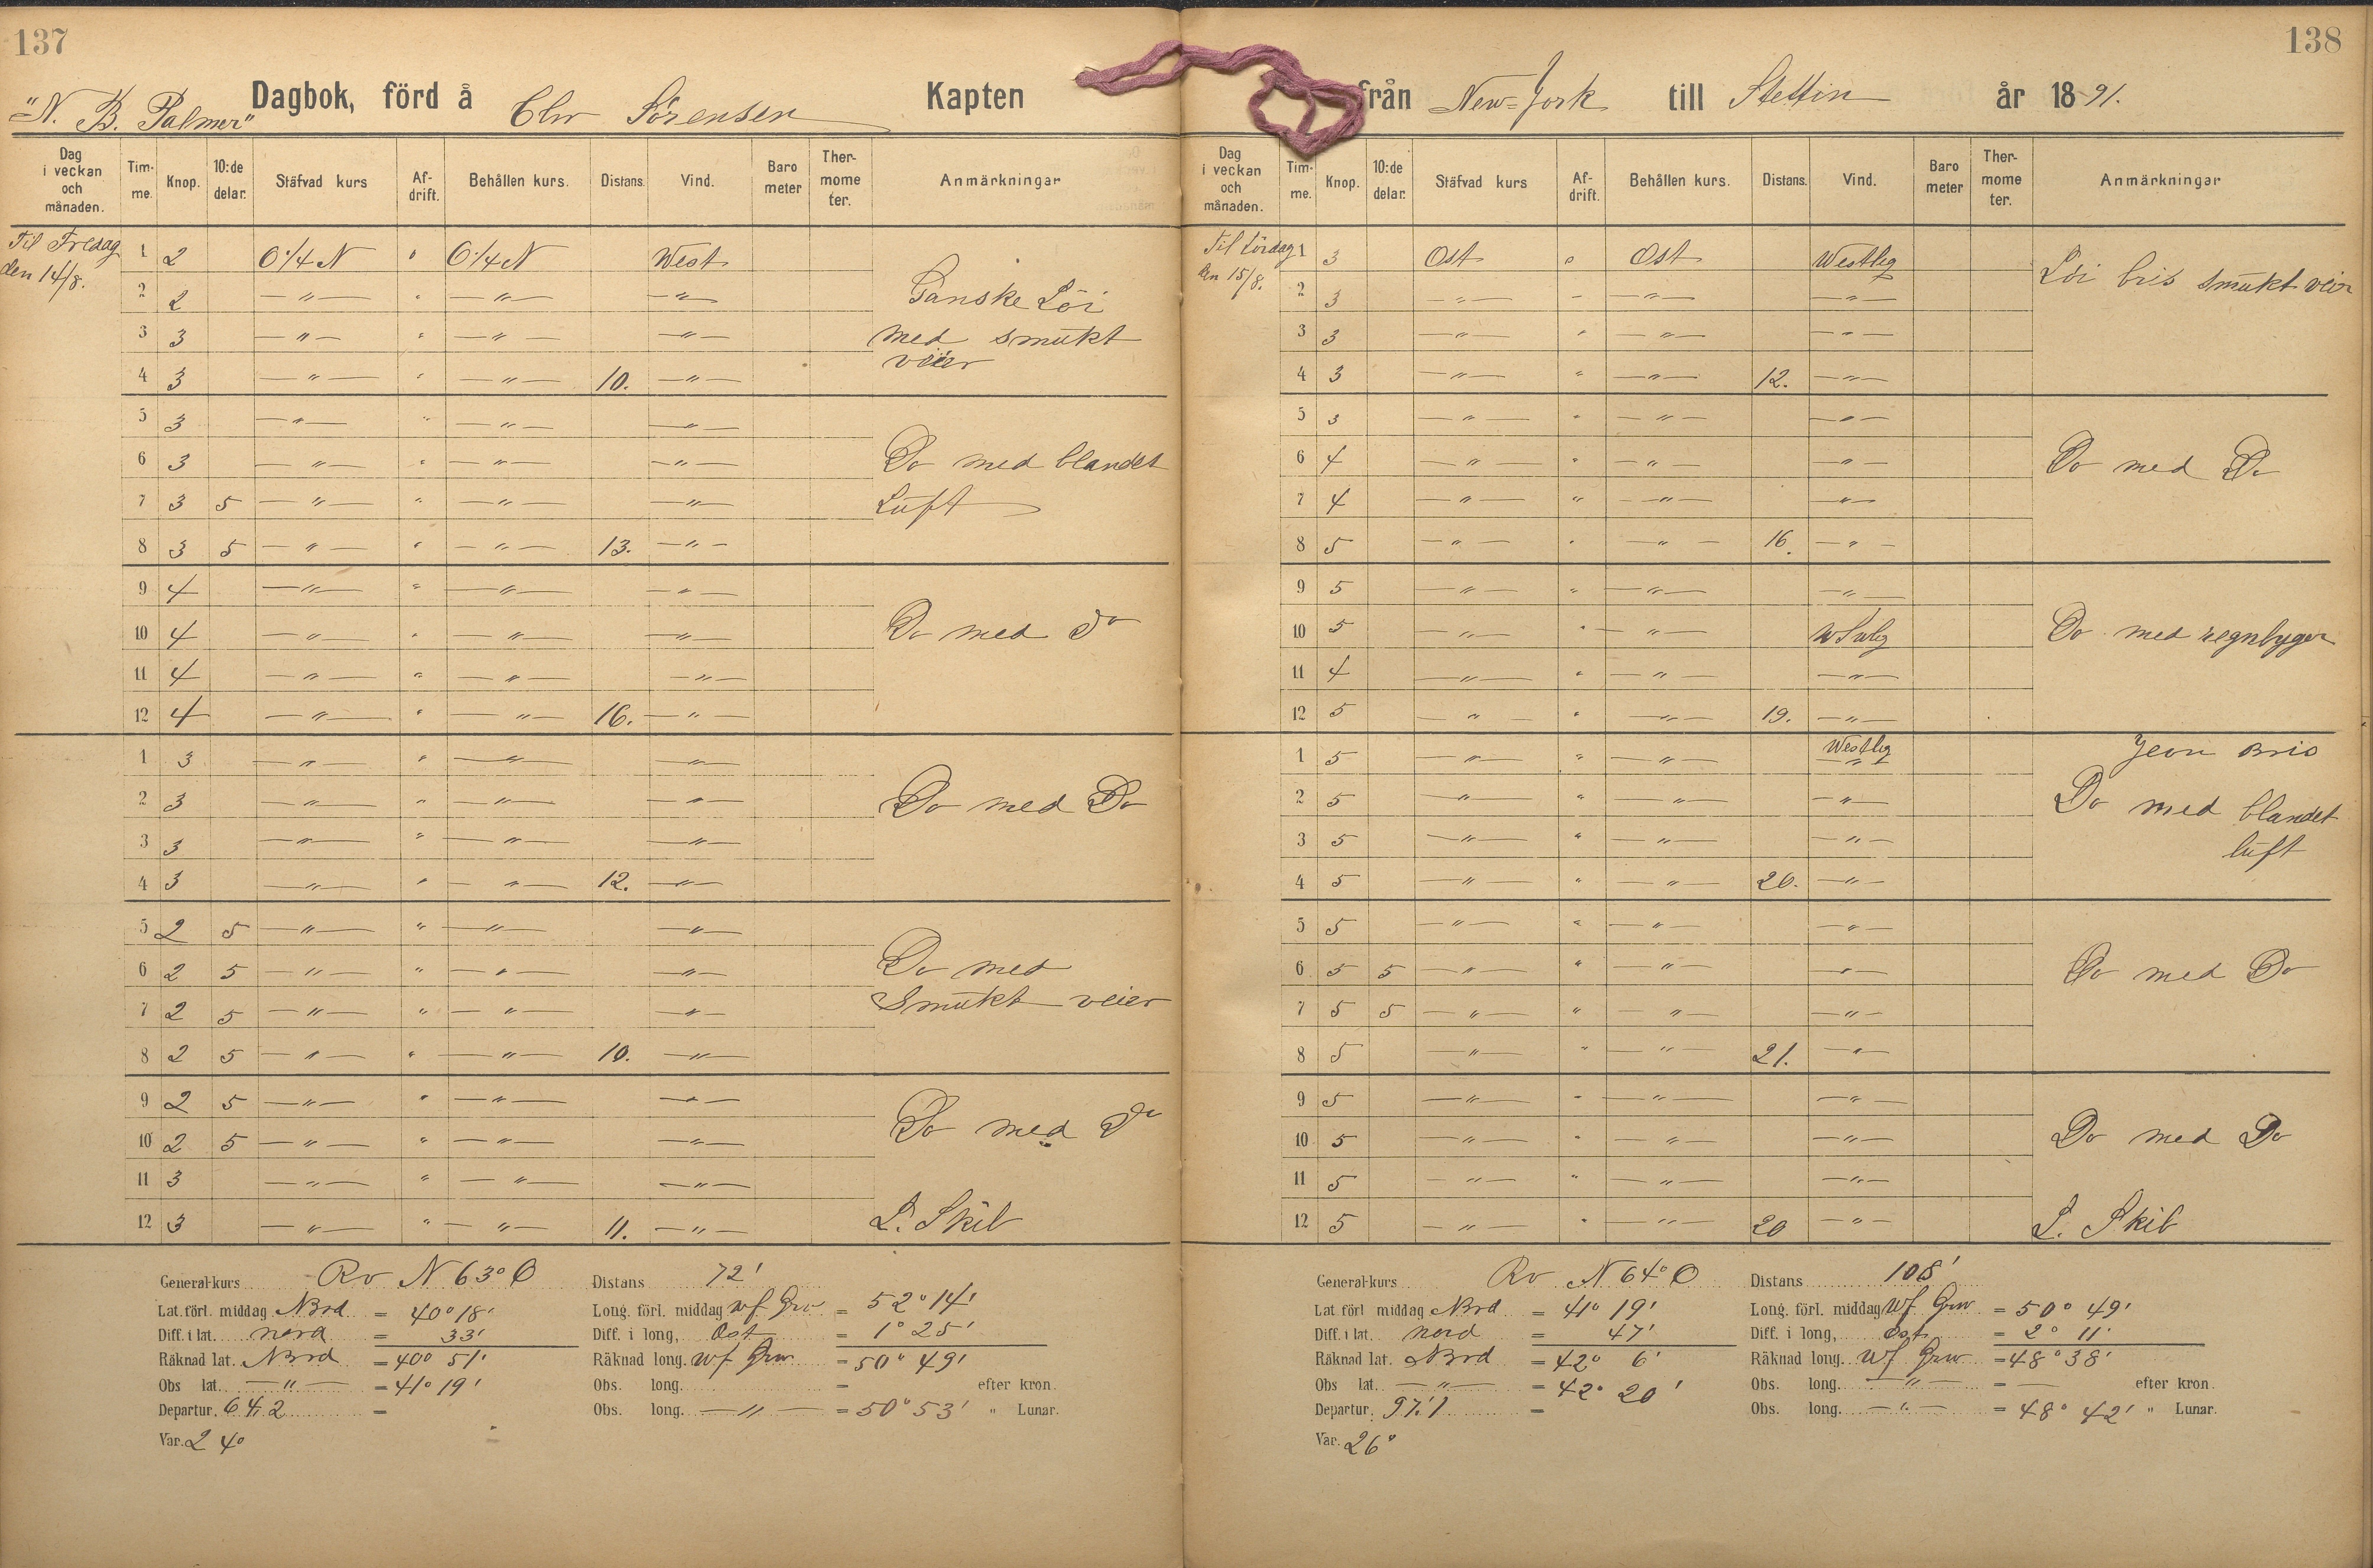 137
"N. B. Palmer" Dagbok, förd å Chr Sörensen Kapten
Dag i veckan och månaden. Tim- me. Knop. 10:de delar. Stäfvad kurs Af- drift. Behållen kurs. Distans. Vind. Baro meter Ther- mome ter. Anmärkningar
Til Fredag den 14/8. 1 2 O 1/4 N " O 1/4 N West
2 2 — " — " — " — — " — Ganske Löi
3 3 — " — " — " — — " — med smukt
4 3 — " — " — " — 10. — " — veier
5 3 — " — " — " — — " —
6 3 — " — " — " — — " — Do med blandet
7 3 5 — " — " — " — — " — Luft
8 3 5 — " — " — " — 13. — " —
9 4 — " — " — " — — " —
10 4 — " — " — " — — " — Do med do
11 4 — " — " — " — — " —
12 4 — " — " — " — 16. — " —
1 3 — " — " — " — — " —
2 3 — " — " — " — — " — Do med Do
3 3 — " — " — " — — " —
4 3 — " — " — " — 12. — " —
5 2 5 — " — " — " — — " —
6 2 5 — " — " — " — — " — Do med
7 2 5 — " — " — " — — " — Smukt veier
8 2 5 — " — " — " — 10. — " —
9 2 5 — " — " — " — — " —
10 2 5 — " — " — " — — " — Do med do
11 3 — " — " — " — — " —
12 3 — " — " — " — 11. — " — L. Skib
General-kurs Rv N 63° O Distans 72'
Lat. förl. middag Nord = 40° 18' Long. förl. middag Wf Grw = 52° 14'
Diff. i lat. nord = 33' Diff. i long, Ost = 1° 25'
Räknad lat. Nord = 40° 51' Räknad long. Wf Grw = 50° 49'
Obs lat. — " — = 41° 19' Obs. long. = efter kron.
Departur. 64,2 = Obs. long. — " — = 50° 53' " Lunar.
Var. 24°
138
från New=York till Stettin år 1891.
Dag i veckan och månaden. Tim- me. Knop. 10:de delar. Stäfvad kurs Af- drift. Behållen kurs. Distans. Vind. Baro meter Ther- mome ter. Anmärkningar
Til Lördag den 15/8. 1 3 Ost " Ost Westlig Löi bris smukt veir
2 3 — " — " — " — — " —
3 3 — " — " — " — — " —
4 3 — " — " — " — 12. — " —
5 3 — " — " — " — — " —
6 4 — " — " — " — — " — Do med Do
7 4 — " — " — " — — " —
8 5 — " — " — " — 16. — " —
9 5 — " — " — " — — " —
10 5 — " — " — " — WSWlig Do med regnbyger
11 4 — " — " — " — — " —
12 5 — " — " — " — 19. — " —
1 5 — " — " — " — Westlig — " — Jevn Bris
2 5 — " — " — " — — " — Do med blandet
3 5 — " — " — " — — " — luft
4 5 — " — " — " — 20. — " —
5 5 — " — " — " — — " —
6 5 5 — " — " — " — — " — Do med Do
7 5 5 — " — " — " — — " —
8 5 — " — " — " — 21. — " —
9 5 — " — " — " — — " —
10 5 — " — " — " — — " — Do med Do
11 5 — " — " — " — — " —
12 5 — " — " — " — 20 — " — L. Skib
General-kurs Rv N 64° O Distans 108'
Lat. förl middag Nord = 41° 19' Long. förl. middag Wf Grw = 50° 49'
Diff. i lat. nord = 47' Diff. i long, Ost = 2° 11'
Räknad lat. Nord = 42° 6' Räknad long. Wf Grw = 48° 38'
Obs lat. — " — = 42° 20' Obs. long. — " — = — efter kron.
Departur. 97,1 = Obs. long. — " — = 48° 42' " Lunar.
Var. 26°